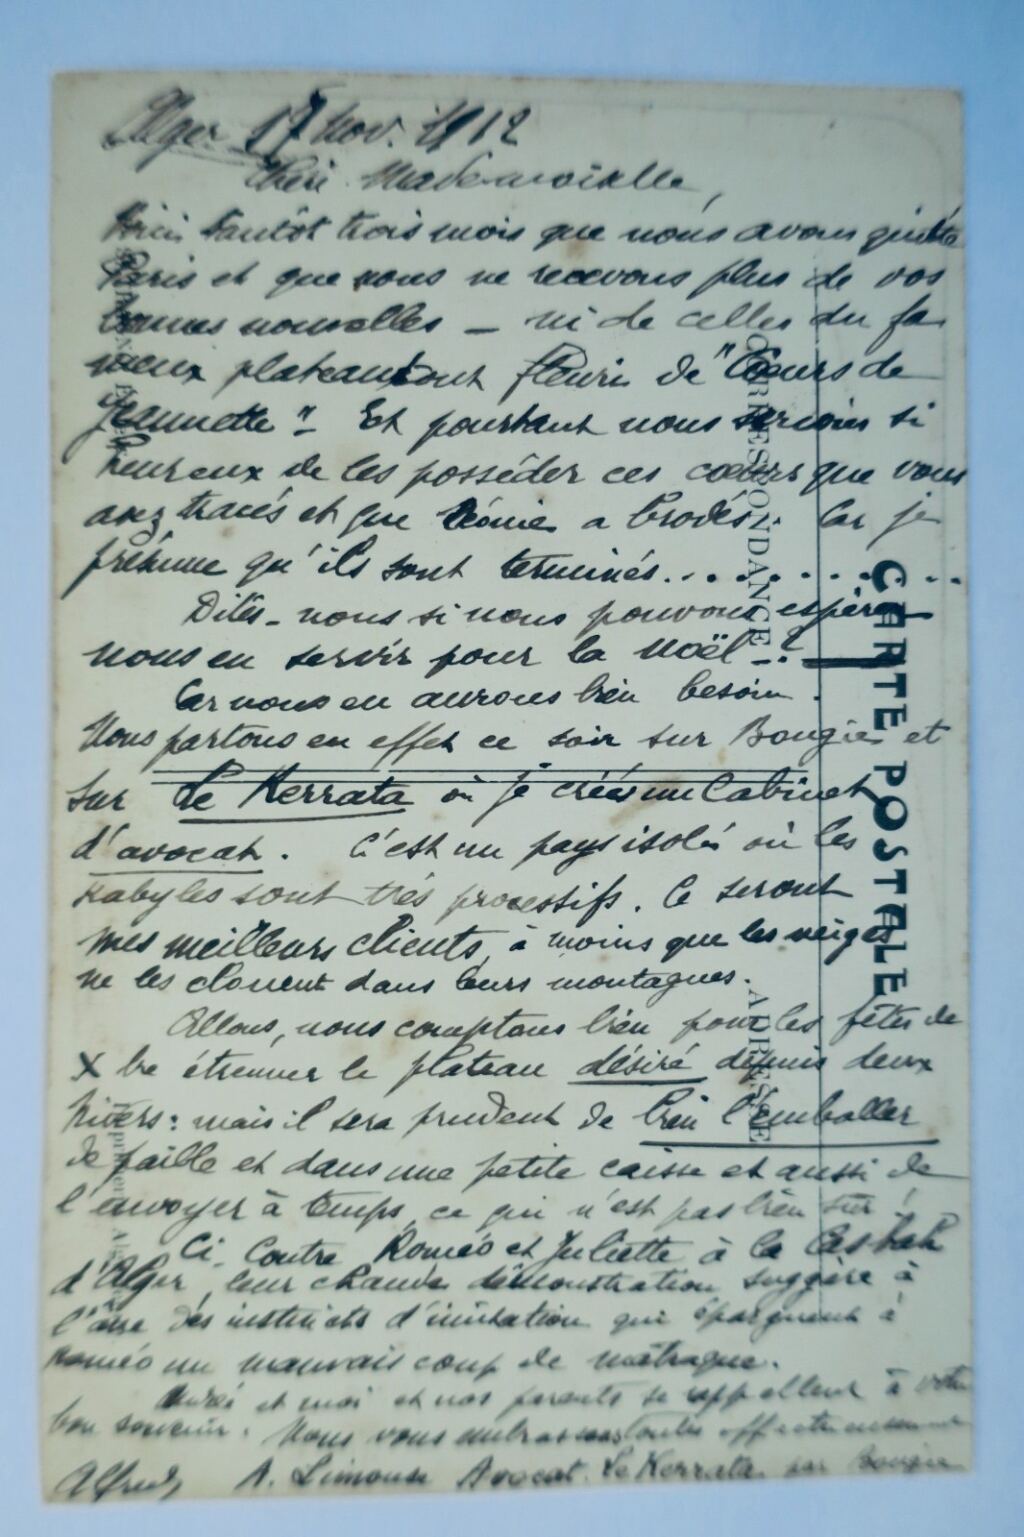 Alger 17 Nov. 1912
Chère Mademoiselle,
Voici tantôt trois mois que nous avons quitté
Paris et que nous ne recevons plus de vos
bonnes nouvelles – ni de celles du fa
meux plateau tout fleuri de "Cœurs de
Jeannette" – Et pourtant nous serions si
heureux de les posséder ces cœurs que vous
avez tracés et que Léonie a brodés. Car je
présume qu'ils sont terminés. . . . . . . . .
Dites-nous si nous pouvons espérer
nous en servir pour la Noël – ?
Car nous en aurons bien besoin.
Nous partons en effet ce soir sur Bougie et
sur Le Kerrata où je crée un Cabinet
d'avocat. C'est un pays isolé où les
Kabyles sont très processifs. Ce seront
mes meilleurs clients, à moins que les neiges
ne les clouent dans leurs montagnes.
Allons, nous comptons bien pour les fêtes de
Xbre étrenner le plateau désiré depuis deux
hivers : mais il sera prudent de bien l'emballer
de paille et dans une petite caisse et aussi de
l'envoyer à temps, ce qui n'est pas bien sûr !
Ci-Contre Roméo et Juliette à la Casbah
d'Alger, leur chaude démonstration suggère à
l'âne des instincts d'imitation qui épargnent à
Roméo un mauvais coup de matraque.
et moi et nos parents se rappellent à votre
bon souvenir. Nous vous embrassons toutes affectueusement
Alfred, A. Limouse Avocat. Le Kerrata par Bougie
CARTE POSTALE
CORRESPONDANCE
ADRESSE